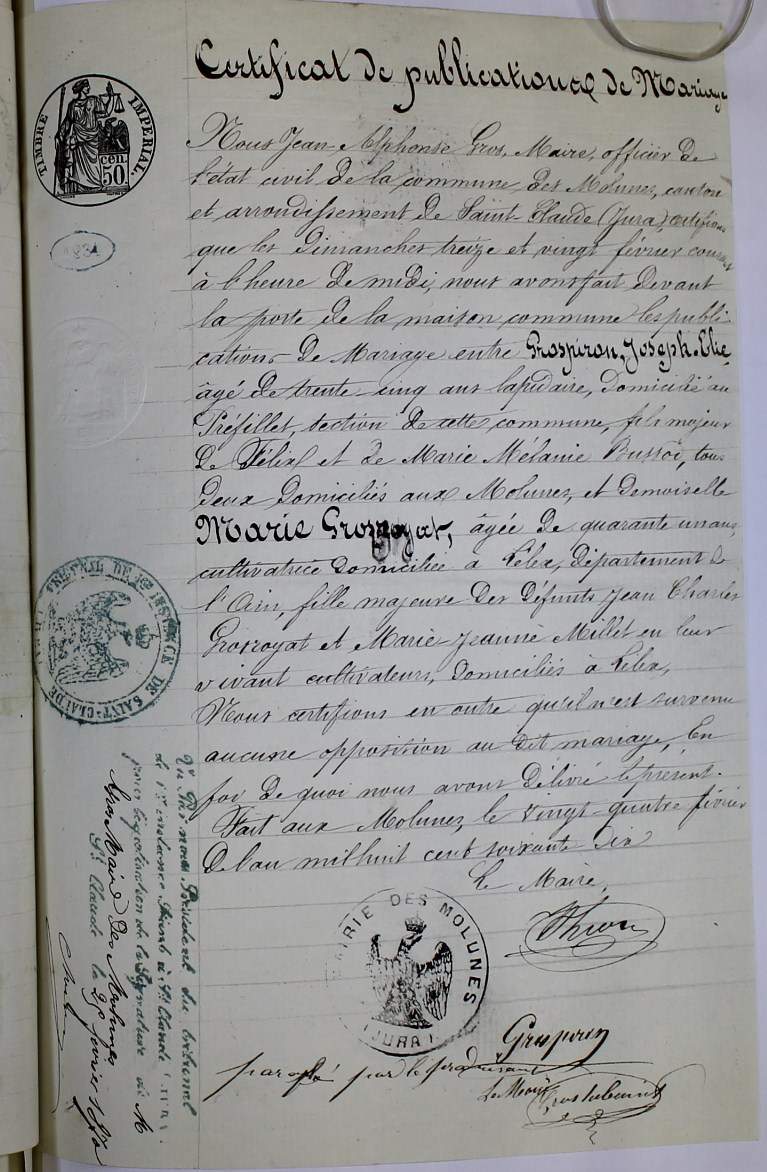 Certificat de publications de Mariage
TIMBRE IMPERIAL.
50 cen
Nous Jean Alphonse Gros, Maire, officier de
l'état civil de la commune des Molunes, canton
et arrondissement de Saint-Claude (Jura), certifions
que les dimanches treize et vingt février courant
à l'heure de midi, nous avons fait devant
la porte de la maison commune les publi-
cations de Mariage entre Grospiron, Joseph-Elie,
âgé de trente-cinq ans lapidaire, domicilié au
Préfillet, section de cette commune, fils majeur
de Félix et de Marie Mélanie Bussoz, tous
deux domiciliés aux Molunes, et demoiselle
Marie Grosroyat, âgée de quarante un ans,
cultivatrice domiciliée à Lélex, département de
l'Ain, fille majeure des défunts Jean Charles
Grosroyat et Marie-Jeanne Millet en leur
vivant cultivateurs, domiciliés à Lélex,
Nous certifions en outre qu'il n'est survenu
aucune opposition au dit mariage, En
foi de quoi nous avons délivré le présent.
Fait aux Molunes, le vingt-quatre février
de l'an mil huit cent soixante dix
Le Maire,
MAIRIE DES MOLUNES
(JURA)
Grospiron
paraphé par le produisant
Le Maire
TRIBUNAL DE 1re INSTANCE DE SAINT-CLAUDE
Vu par nous Président du tribunal
de 1re instance séant à St Claude (Jura)
pour légalisation de la signature de M
Gros Maire des Molunes
St Claude le février 1870